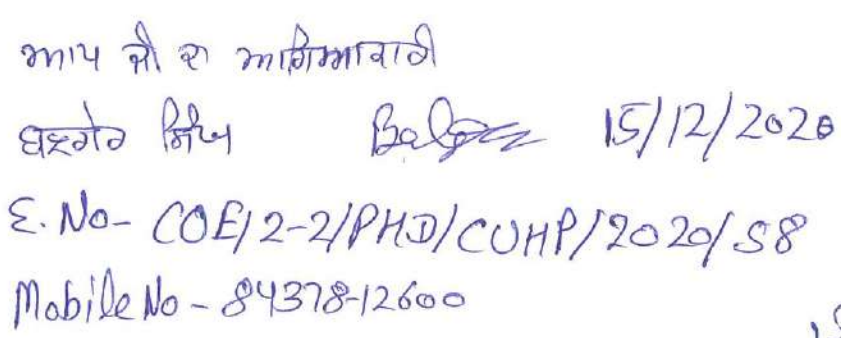 ਆਪ ਜੀ ਦਾ ਆਗਿਆਕਾਰੀ
ਸਿੰਘ 15/12/2020
E. No- COE/2-2/PHD/CUHP/2020/58
Mobile No - 84378-12600